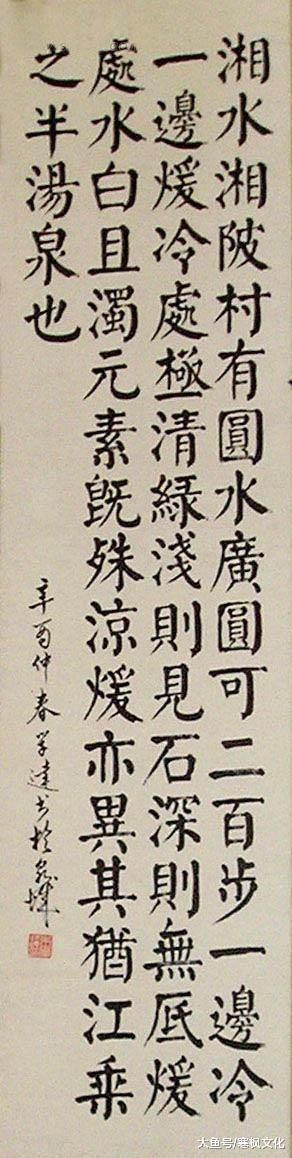 湘水湘陂村有圓水廣圓可二百步一邊冷
一邊煖冷處極清綠淺則見石深則無底煖
處水白且濁元素既殊涼煖亦異其猶江乘
之半湯泉也
辛酉仲春学達书於
大鱼号/寒枫文化